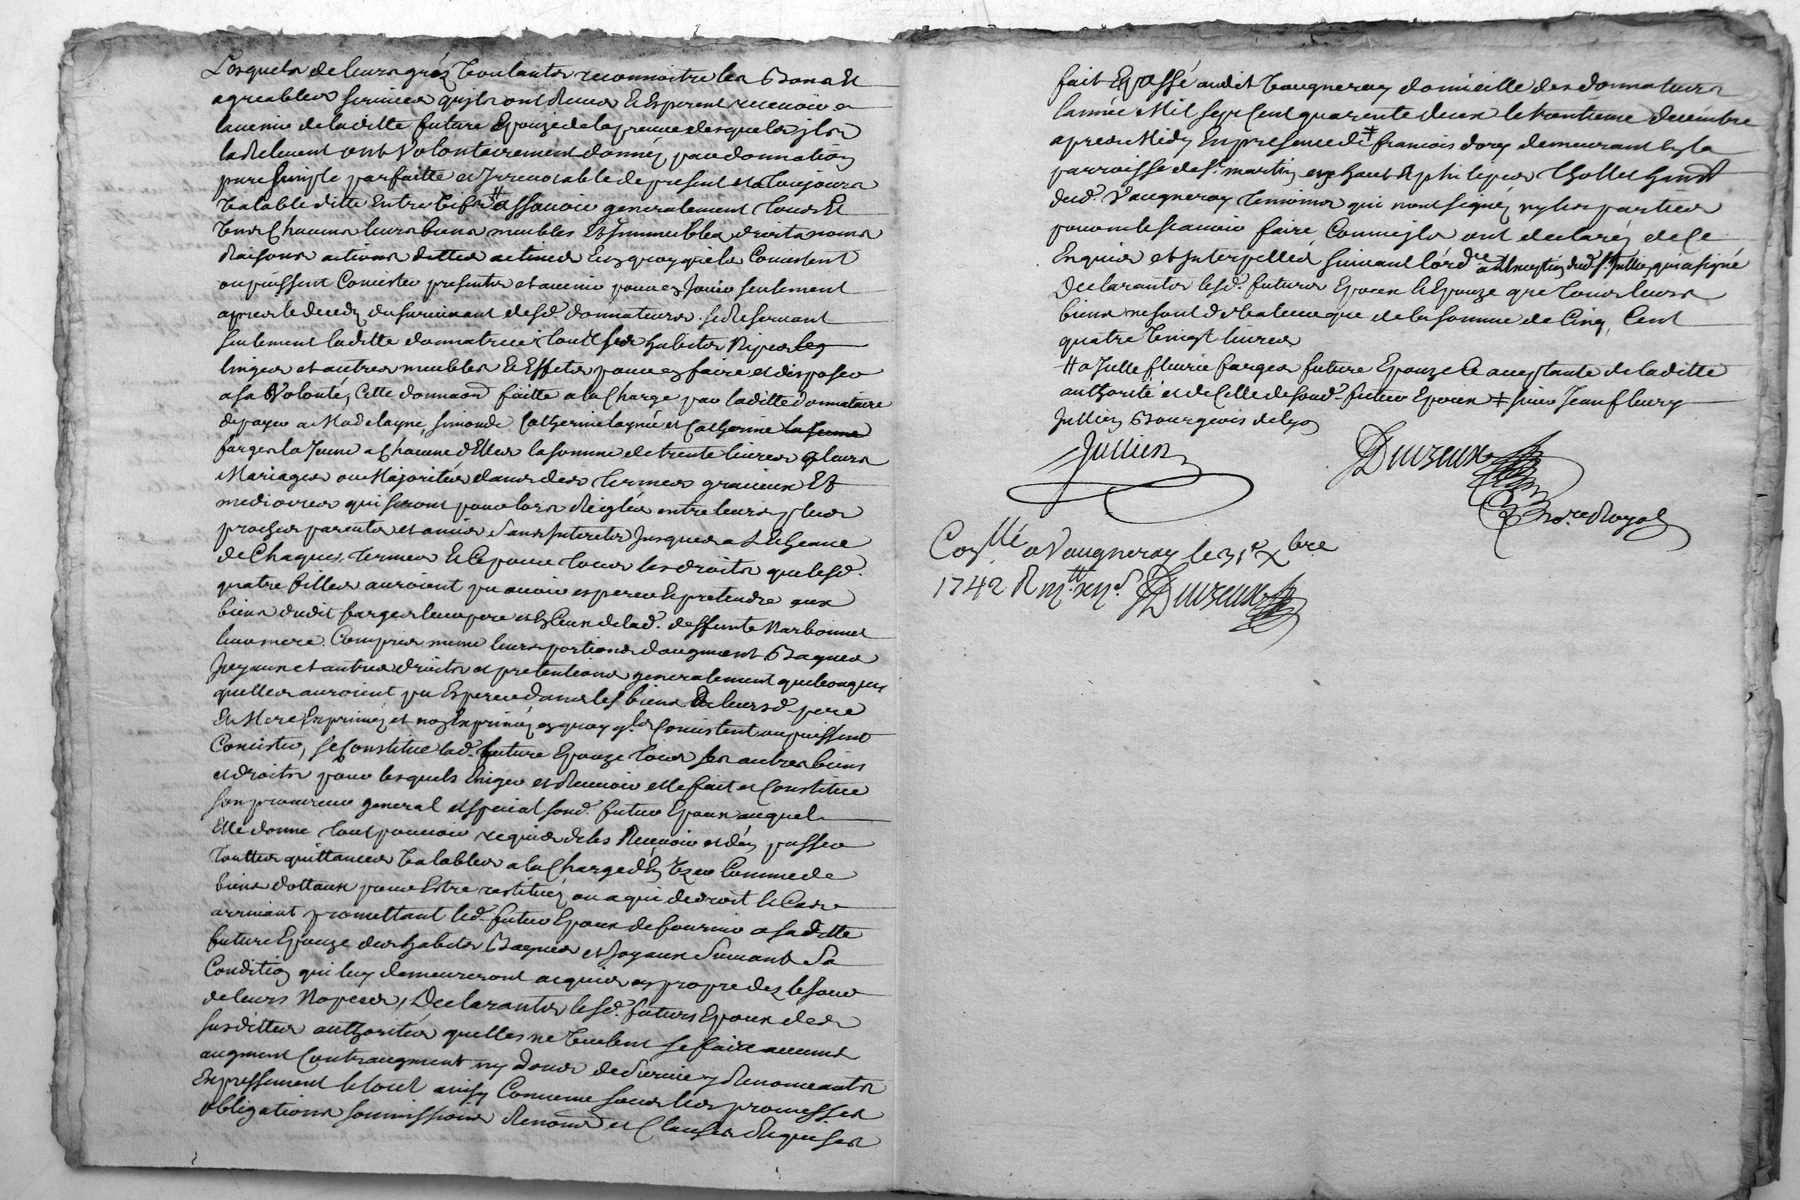 Lesquels de leurs gréz voulants reconnoitre les Bons Et
agreables services quils ont Receus Et Esperent recevoir a
lavenir de laditte future Epouze de la preuve desquels ils
la Relevent ont Volontairement donnéz par donnation
pure simple parfaitte et Irrevocable de present et a toujours
valable ditte Entre vifs # assavoir generalement tous Et
Uns Chacuns leurs biens meubles Et Immeubles droits noms
Raisons actions dettes actives En quoy quils Concistent
ou puissent Concister presents et avenir pour en Jouir seulement
apres le deces du survivant desd. donnateurs se Reservant
seulement laditte donnatrice tous ses habits Nipes
linges et autres meubles Et Effets pour en faire et disposer
a sa Volonté, Cette donnaon faitte a la Charge par laditte donnataire
de payer a Madelayne, simonde Catherine laynée et Catherine la jeune
farges la Jeune a Chacune d'Elles la somme de trente livres a leurs
Mariages ou Majorités dans des termes gracieux Et
mediocres qui seront pour lors Reiglés entre leurs plus
proches parents et amis Sans Interets Jusques a L'Echeance
de Chaques termes Et Ce pour tous les droits que lesd.
quatre filles auroient pu avoir esperer Et pretendre aux
biens dudit farges leur pere et en Ceux de lad. deffunte Narbonnet
leur mere Compris meme leurs portions daugment Bagues
Joyaux et autres droits et pretentions generalement quelconques
quelles auroient pu Esperer dans les biens de leursd. pere
Et Mere Exprimés et non Exprimés en quoy qls Concistent ou puissent
Concister, se Constitue lad. future Epouze tous ses autres biens
et droits pour lesquels Exiger et Recevoir elle fait et Constitue
son procureur general et special sond. futur Epoux auquel
Elle donne tout pouvoir requis de les Recevoir et den passer
touttes quittances valables a la Charge d'En User Comme de
biens dottaux pour Estre restitués ou a qui de droit le Cas
arrivant promettant led. futur Epoux de fournir a saditte
future Epouze des habits Bagues et Joyaux Suivant Sa
Condition qui luy demeureront acquis en propre dez le Jour
de leurs Nopces, Declarants lesd. futurs Epoux desd
susdittes authorités quelles ne veulent se faire aucuns
augment Contraugment ny donns de survie y Renonceants
Expressement le tout ainsy Convenu sous les promesses
obligations soumissions Renons et Clauses Requises
fait Et passé audit Vaugneray domicille des donnateurs
lannée Mil sept Cent quarente deux le trentieme decembre
apres Midy En presence de ‡ francois dory demeurant en la
parroisse de St martin en haut Et philipes thollet
dud. Vaugneray temoins qui nont signéz ny les parties
pour ne le scavoir faire Comme ils ont declaréz de Ce
Enquis et Interpellés suivant lordre a lexception dud. Sr. Jullien qui a signé
Declarants lesd. futurs Epoux Et Epouze que tous leurs
biens ne sont de Valeur que de la somme de Cinq, Cent
quatre Vingt livres
# a Jelle fleurie farges future Epouze Ce acceptante de laditte
authorité et de Celle de sond. futur Epoux ‡ sieur Jean fleury
Jullien Bourgeois de lyon
Jullien
Duvzeux
Nore Royal
Conllé a Vaugneray le 31e Xbre
1742 R
Duvzeux